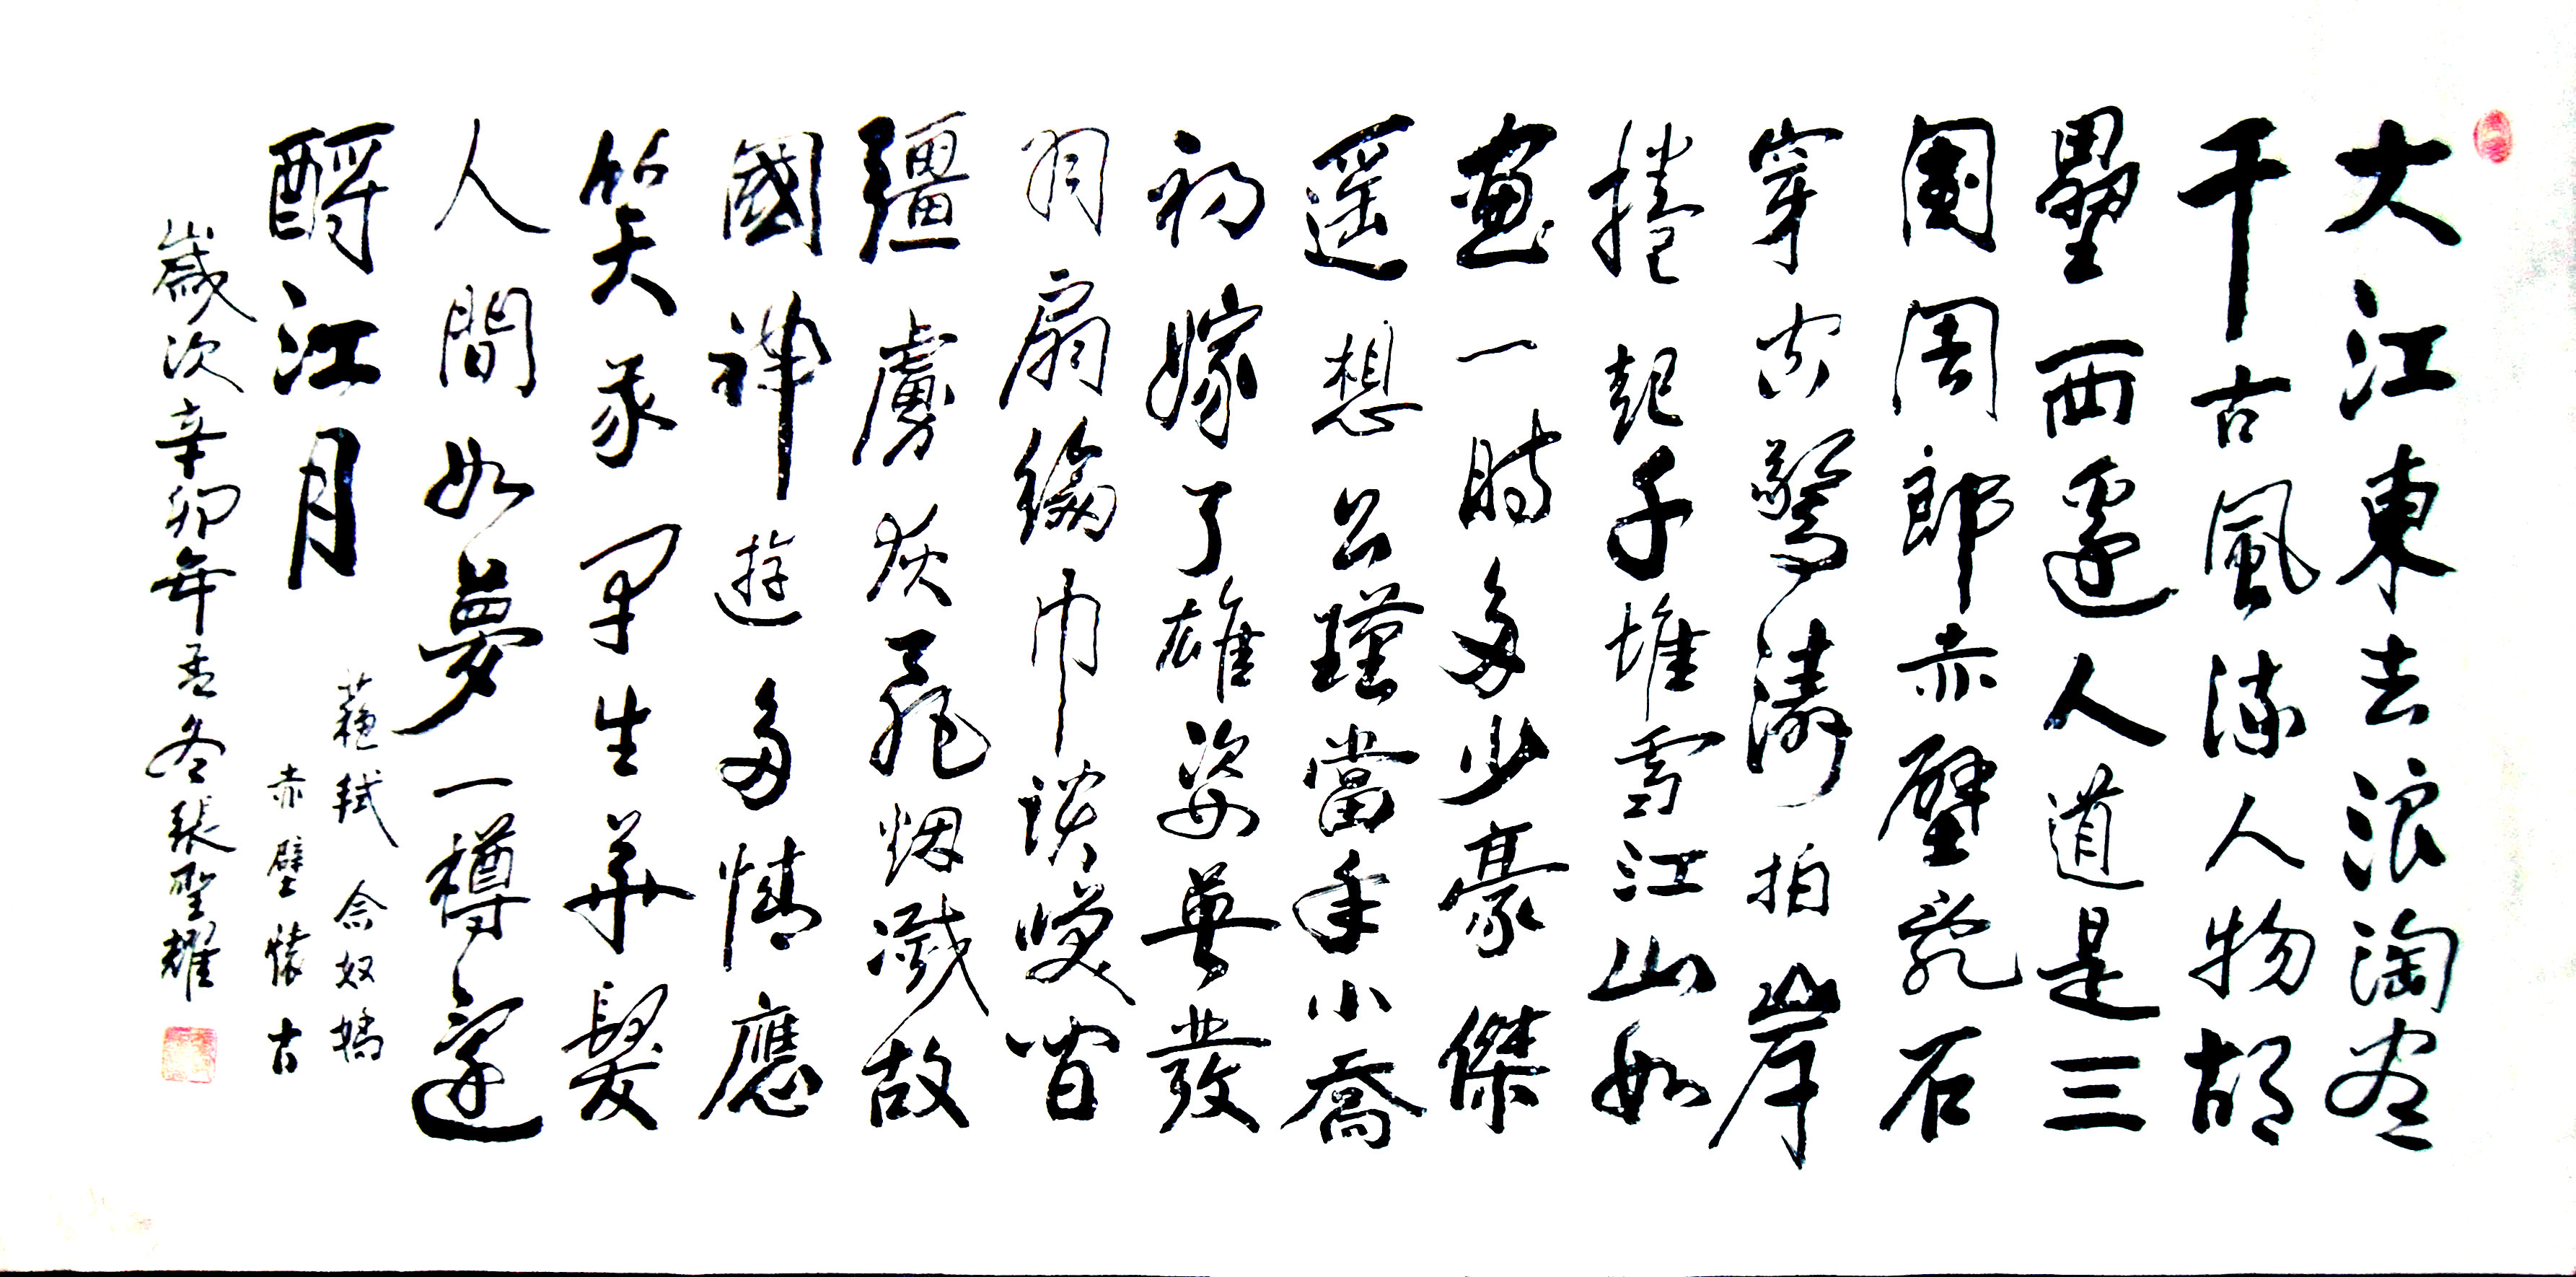 大江東去浪淘盡
千古風流人物故
壘西邊人道是三
國周郎赤壁亂石
穿空驚濤拍岸
捲起千堆雪江山如
畫一時多少豪傑
遥想公瑾當年小喬
初嫁了雄姿英發
羽扇綸巾談笑間
彊虜灰飛烟滅故
國神遊多情應
笑我早生華髮
人間如夢一樽還
酹江月
蘇軾念奴嬌
赤壁懷古
歲次辛卯年孟冬張聖耀